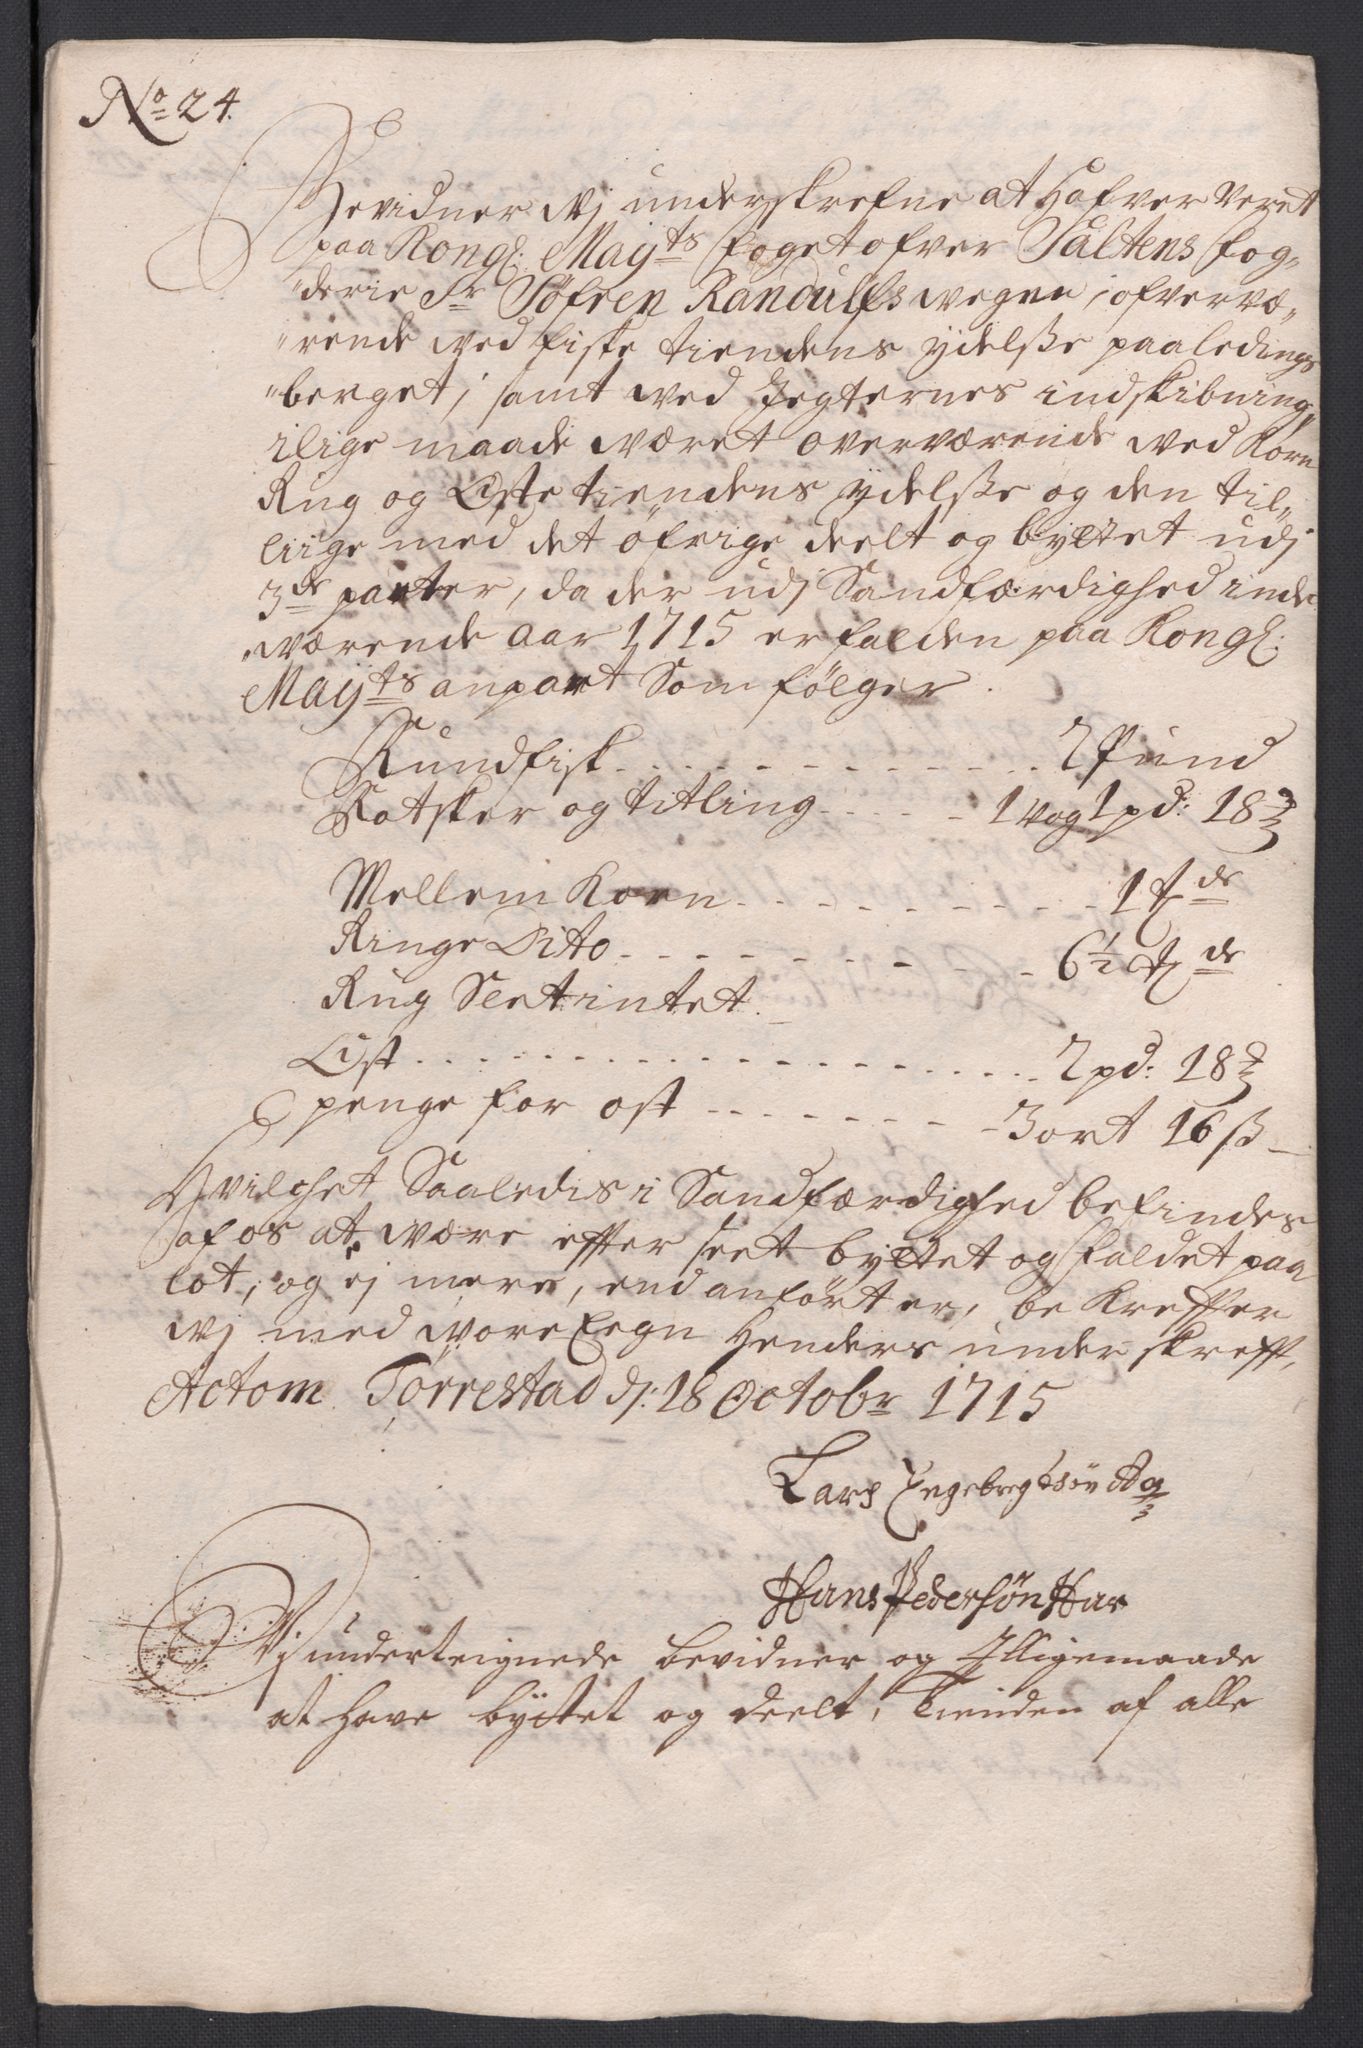 No 24.
Bevidner Wj underskrefne at Hafver veret
paa Kongl: Mayts foget ofver Saltens fog„
„derie Sr Söfren Randulfs wegne, ofvervæ„
„rende wed fiske tiendens ydelsse paa ledings
„berget, samt wed Jegternes indskibning,
ilige maade wæret overværende wed Korn
Rug og Oste tiendens ydelsse og den til„
liige med det öfrige deelt og byttet udj
3de parter, da der udj Sandfærdighed inde
„wærende aar 1715 er falden paa Kongl:
Mayts anpart Som fölger.
Rundfisk . . . . . . . . . . 2 Pund
Rotsker og titling . . . . . 1 Vog 1 pd: 18 ℔
Mellem Korn . . . . . . . . . . 1 Tde
Ringe Dito . . . . . . . . . 6½ Tde
Rug Slet intet.
Ost . . . . . . . . . . . . . . . 2 pd: 18 ℔
penge for ost . . . . . . . . 3 ort 16 ß
Hvilchet Saaledis i Sandfærdighed befindes
af os at være effter seet byttet og faldet paa
lot, og ej mere, end anfört er, be Kreffter
wj med wore Eegn Henders under skrefft,
Actom Törrestad d: 18 Octobr 1715
Lars Engebregtsön
Hans Pedersön Har
Wj underteignede bevidner og Illigemaade
at have byttet og deelt, Tienden af alle